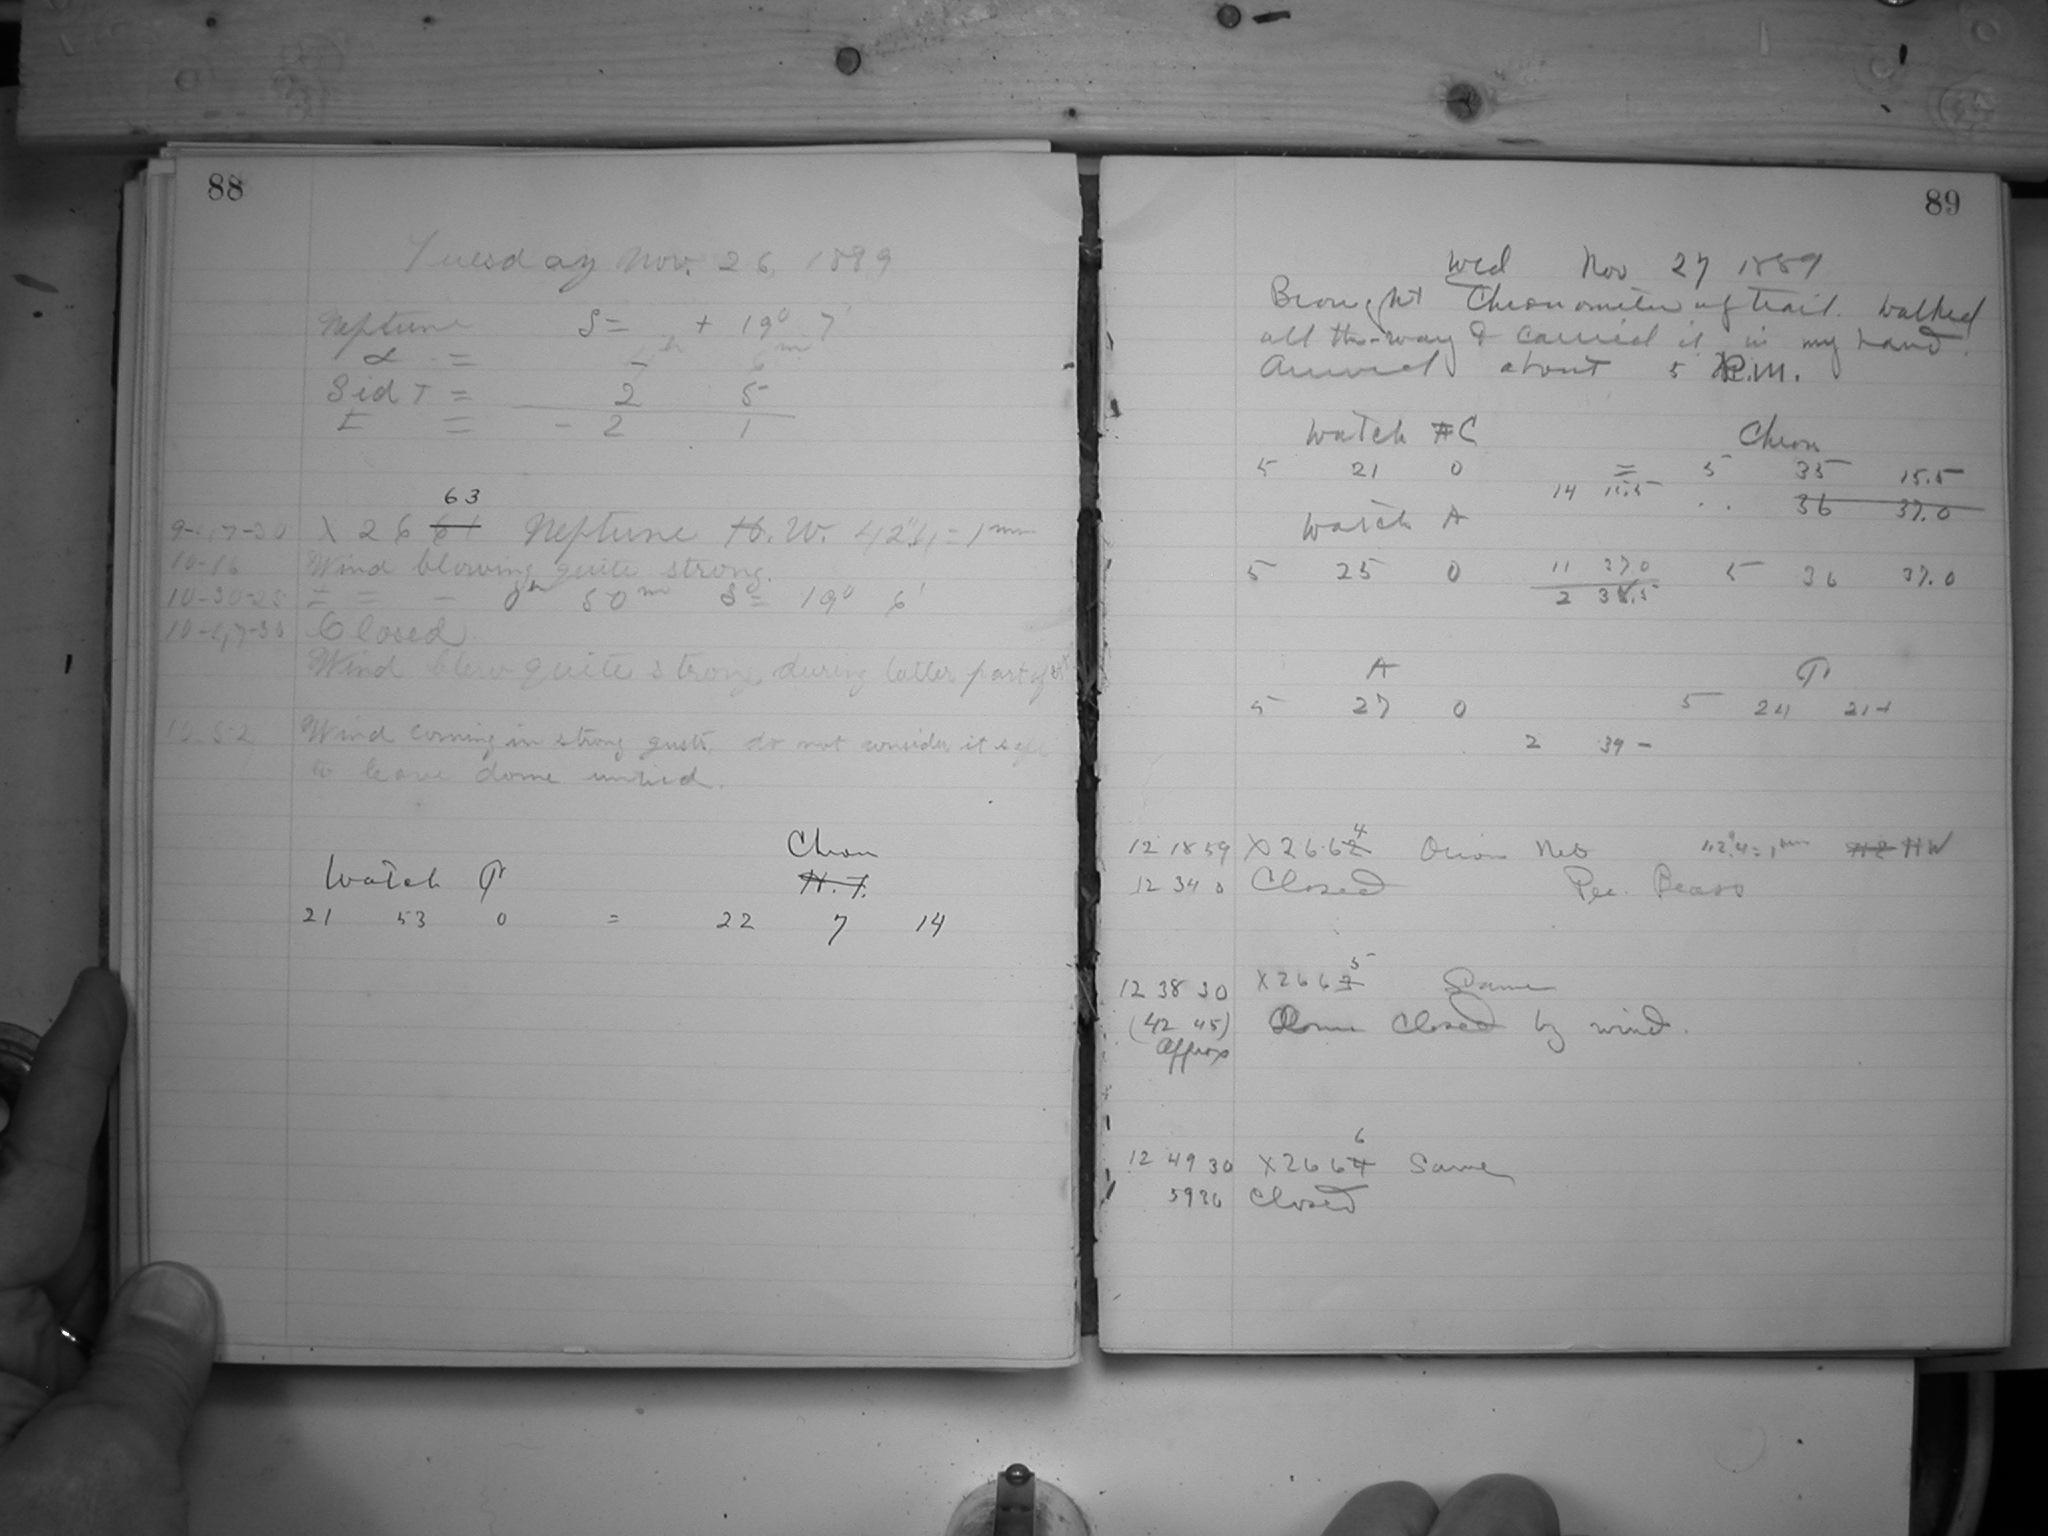 88
Tuesday Nov. 26, 1889
Neptune δ = + 19° 7'
α = 4h 6m
Sid T = 2 5
t = - 2 1
63
9-47-30 X 26 61 Neptune H. W. 42".4 = 1mm
10-16 Wind blowing quite strong.
10-30-25 t = - 0h 50m δ = 19° 6'
10-47-30 Closed
Wind blew quite strong during latter part of
10-52 Wind coming in strong gusts, do not consider it safe
to leave dome untied.
Chron
Watch H.T.
21 53 0 = 22 7 14
89
Wed Nov 27 1889
Brought Chronometer up trail. Walked
all the way & carried it in my hand.
Arrived about 5 P.M.
Watch C Chron
5 21 0 = 5 35 15.5
14 15.5 36 37.0
Watch A
5 25 0 11 37.0 5 36 37.0
2 38.5
A
5 27 0 5 24 21+
2 39 -
4
12 18 59 X 2662 Orion Neb 42".4 = 1mm HW
12 34 0 Closed Rec.
5
12 38 30 X 2663 Same
(42 45) Dome Closed by wind.
approx
6
12 49 30 X 2664 Same
59 30 Closed